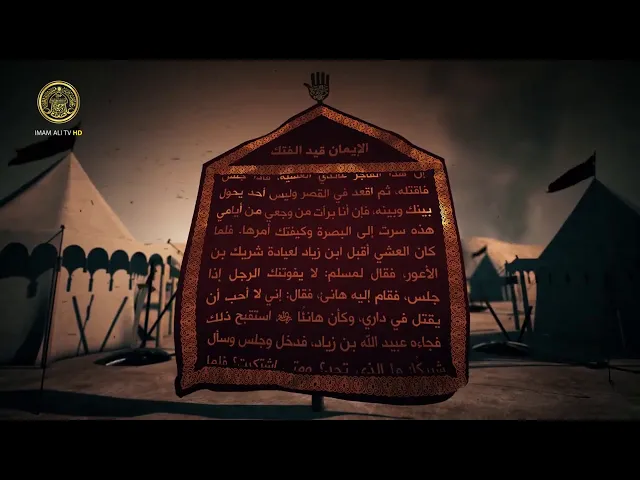 IMAM ALI TV HD
الإيمان قيد الفتك
إن هذا الفاجر عائدي العشية، فإذا جلس
فاقتله، ثم اقعد في القصر وليس أحد يحول
بينك وبينه، فإن أنا برأت من وجعي من أيامي
هذه سرت إلى البصرة وكفيتك أمرها. فلما
كان العشي أقبل ابن زياد لعيادة شريك بن
الأعور، فقال لمسلم: لا يفوتنك الرجل إذا
جلس، فقام إليه هانئ، فقال: إني لا أحب أن
يقتل في داري، وكأن هانئًا استقبح ذلك
فجاءه عبيد الله بن زياد، فدخل وجلس وسأل
شريكًا: ما الذي تجد؟ ومتى اشتكيت؟ فلما